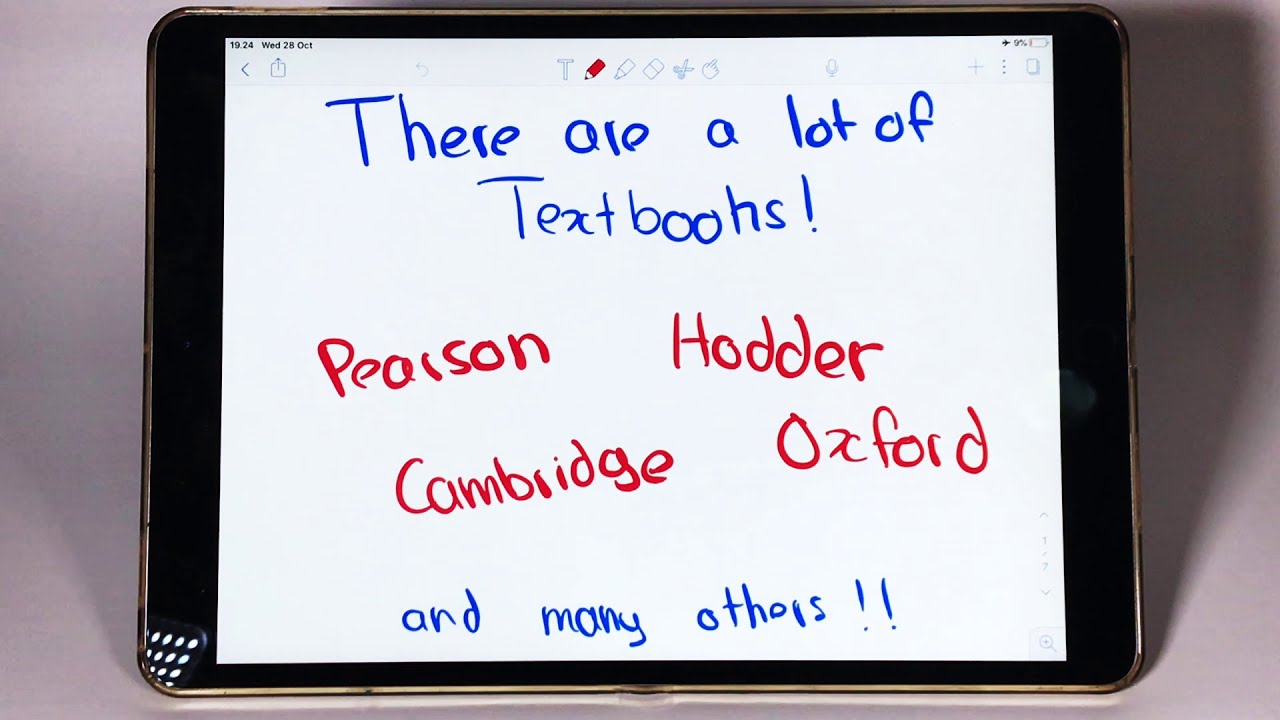 19.24 Wed 28 Oct 9%
T
There are a lot of
Textbooks!
Pearson Hodder
Cambridge Oxford
and many others!!
1
/
7